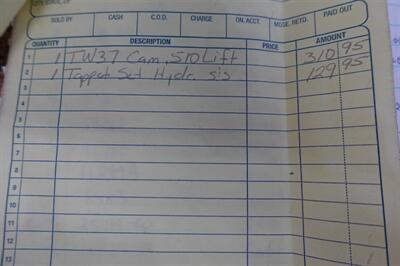 SOLD BY CASH C.O.D. CHARGE ON. ACCT. MDSE. RETD. PAID OUT
QUANTITY DESCRIPTION PRICE AMOUNT
1 1 TW37 Cam .510 Lift 310 95
2 1 Tappet Set Hydr. sis 129 95
3
4
5
6
7
8
9
10
11
12
13